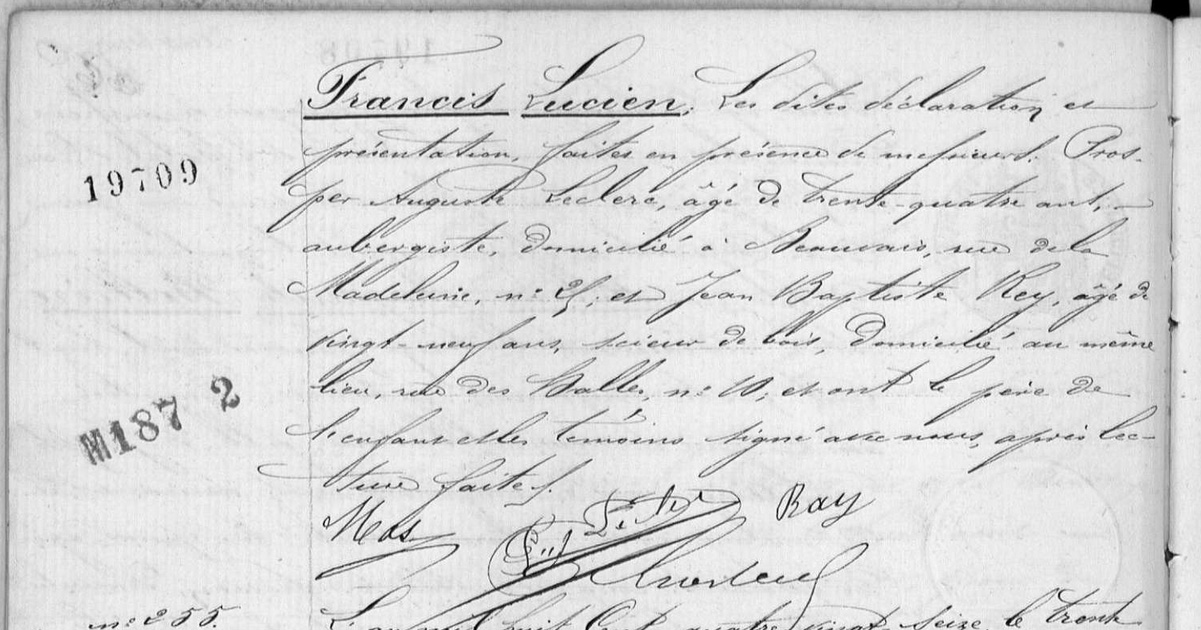 Francis Lucien. Les dites déclaration et
présentation, faites en présence de messieurs. Pros-
19709
per Auguste Leclerc, âgé de trente-quatre ans,
aubergiste, domicilié à Beauvais, rue de la
Madeleine, n° et Jean Baptiste Rey, âgé de
vingt-neuf ans, scieur de bois, domicilié au même
lieu, rue des Halles, n° 10, et ont le père de
M187 2
l'enfant et les témoins signé avec nous, après lec-
ture faite.
Ray
n° 255.
L'an mil huit cent quatre vingt seize le trente